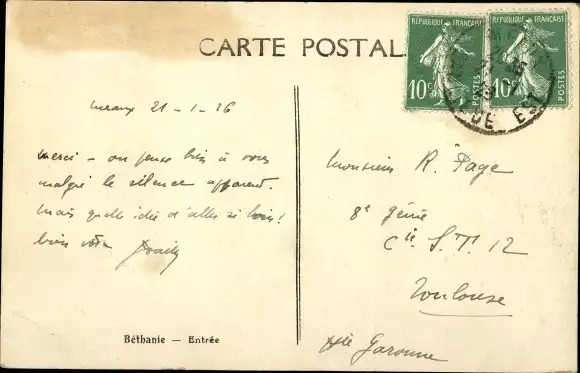 CARTE POSTALE
RÉPUBLIQUE FRANÇAISE
10c
POSTES
RÉPUBLIQUE FRANÇAISE
10c
POSTES
DE EST
Meaux 21-1-26
merci - on pense bien à vous
malgré le silence apparent.
Mais quelle idée d'aller si loin!
bien vôtre
Béthanie — Entrée
Monsieur R. Page
8e génie
Cie S.T. 12
Toulouse
Hte Garonne